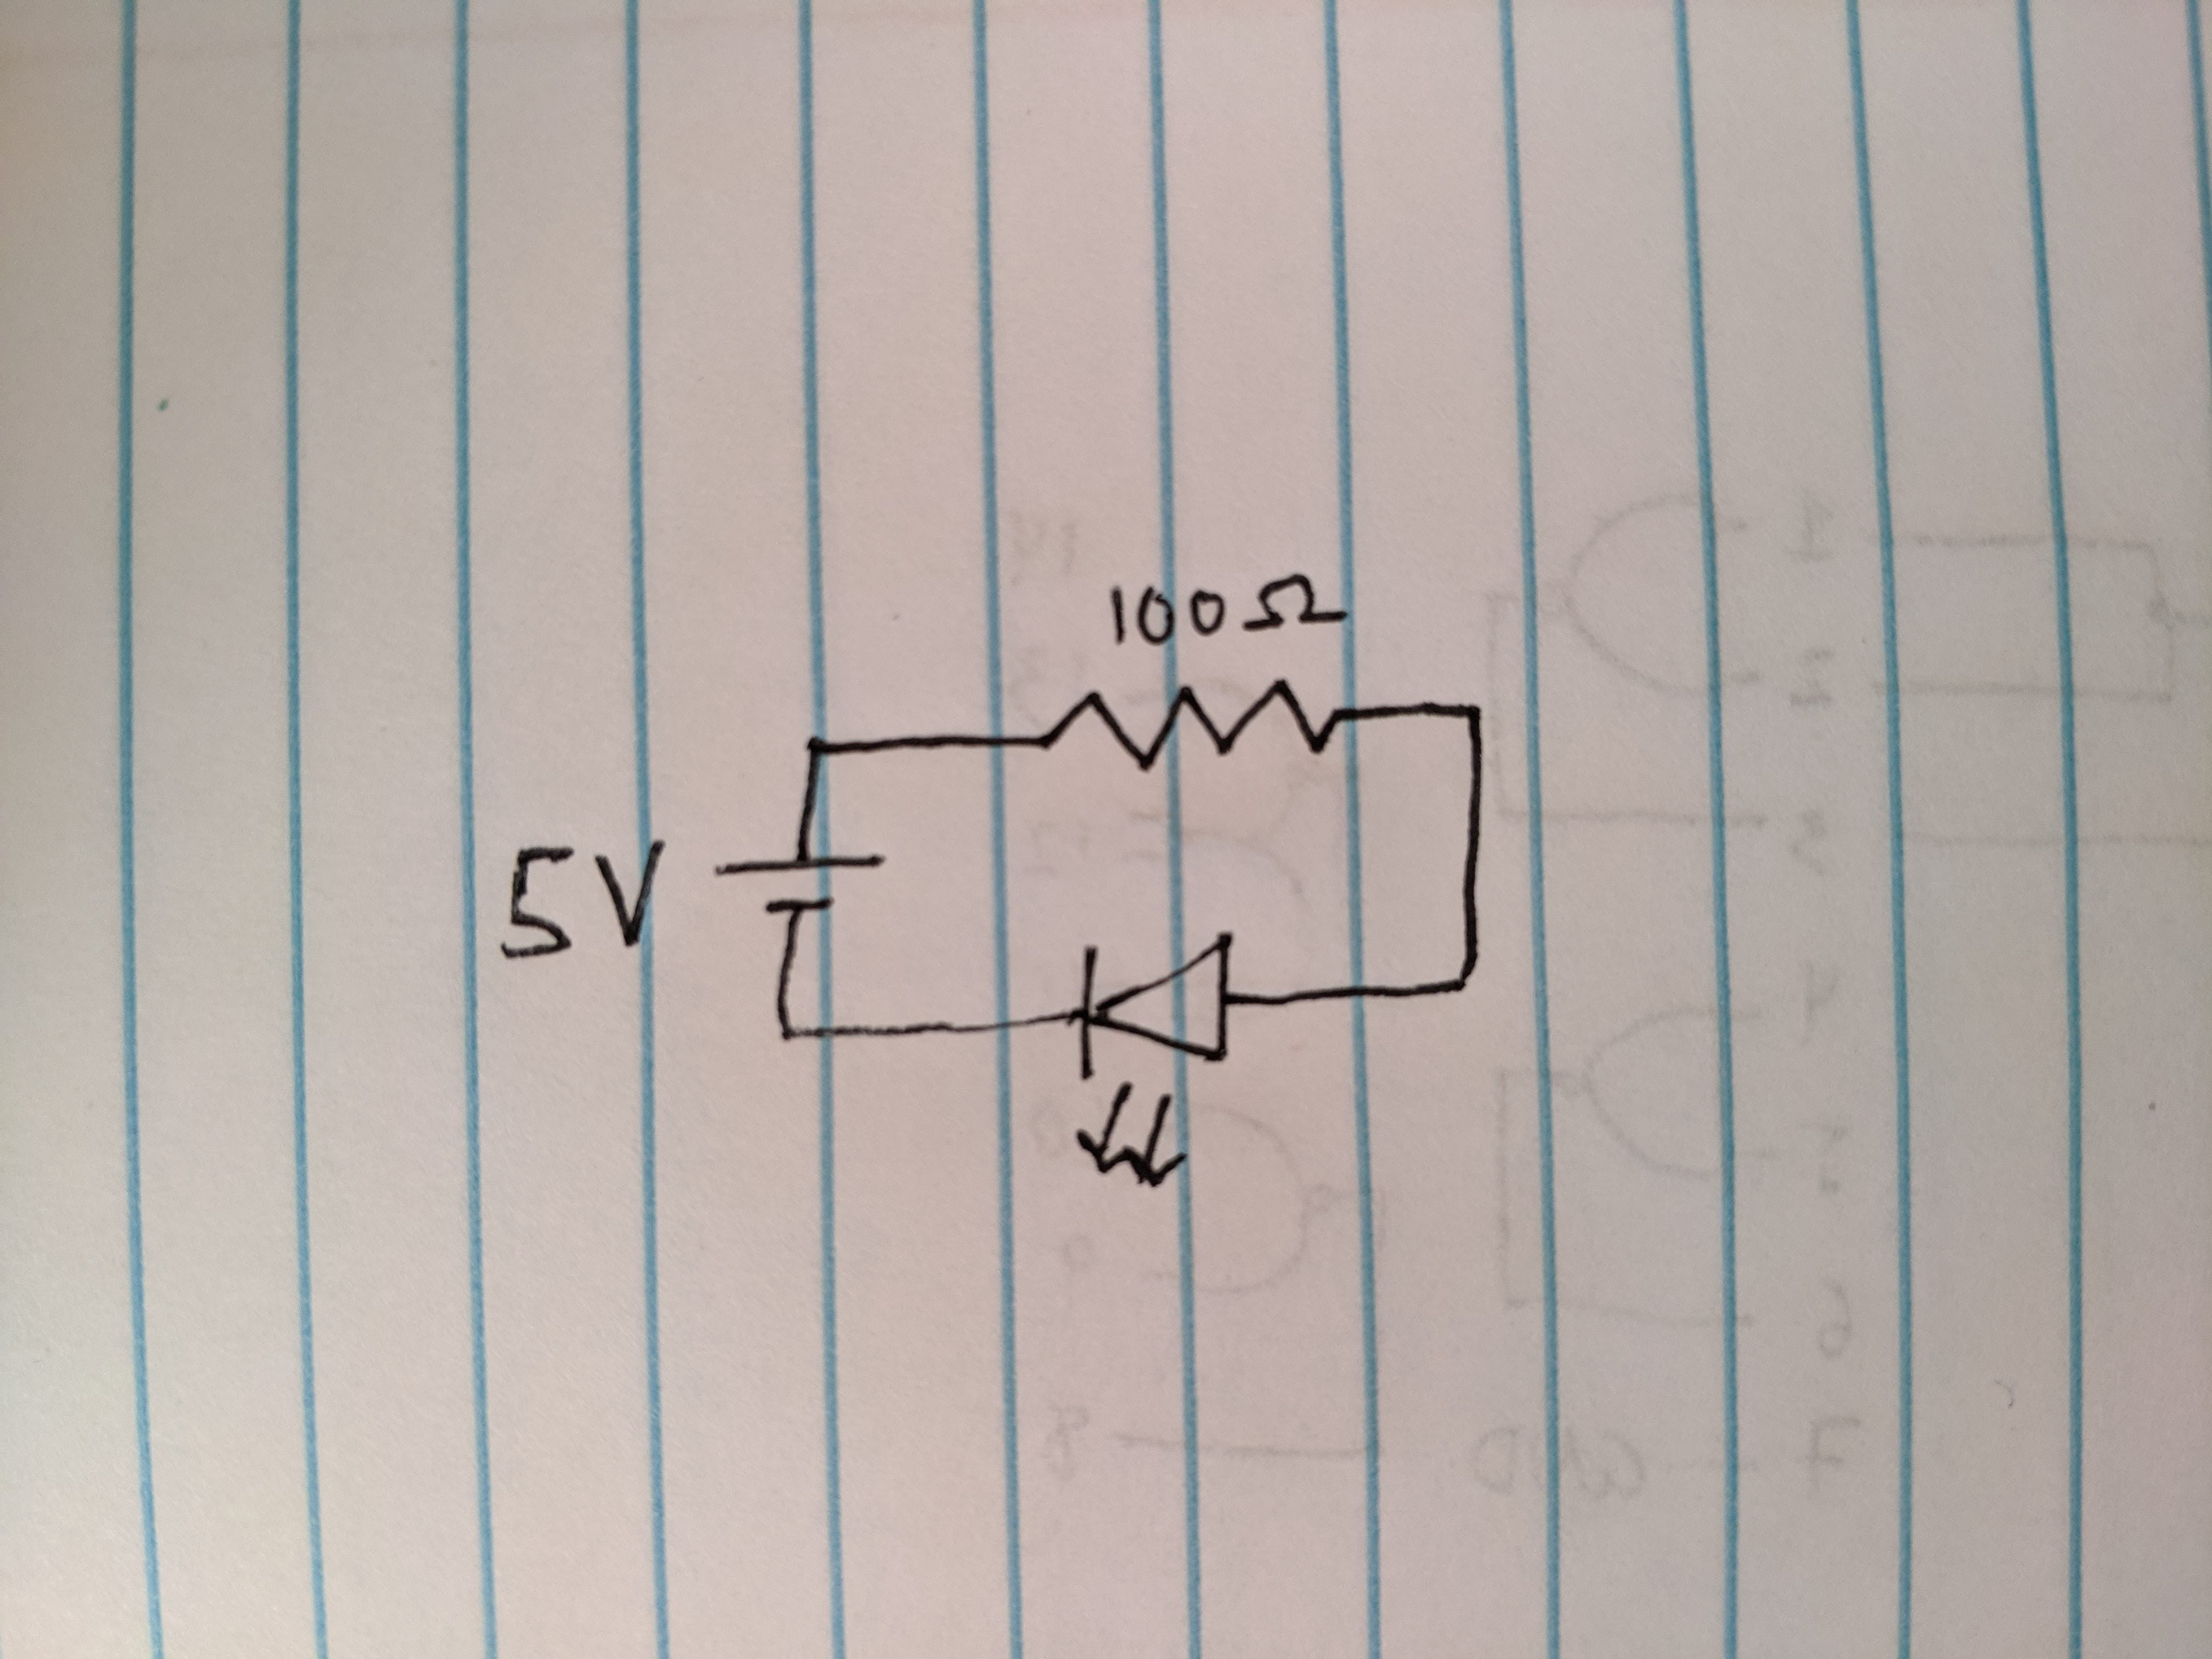 100Ω
5V